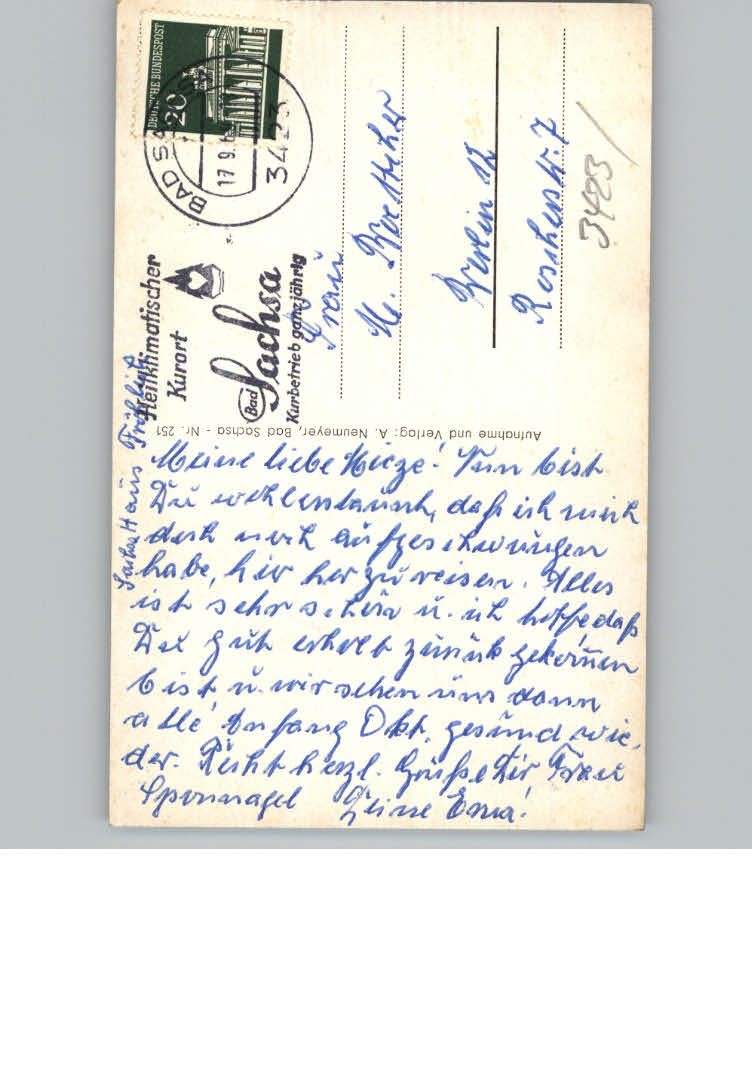 DEUTSCHE BUNDESPOST
20
BAD SA
17.9.6
3423
Heilklimatischer
Kurort
Bad Sachsa
Kurbetrieb ganzjährig
Frau
M. Boettcher
Berlin 12
Roscherstr. 7
3423
Aufnahme und Verlag: A. Neumeyer, Bad Sachsa - Nr. 251
Haus Fröhlich
Meine liebe Mieze! Nun bist
Du wohl erstaunt, daß ich mich
doch noch aufgeschwungen
habe, hier her zu reisen. Alles
ist sehr schön u. ich hoffe, daß
Du gut erholt zurück gekommen
bist u. wir sehen uns dann
alle Anfang Okt. gesund wie,
der. Recht herzl. Grüße Dir Frau
Sponnagel Deine Erna!